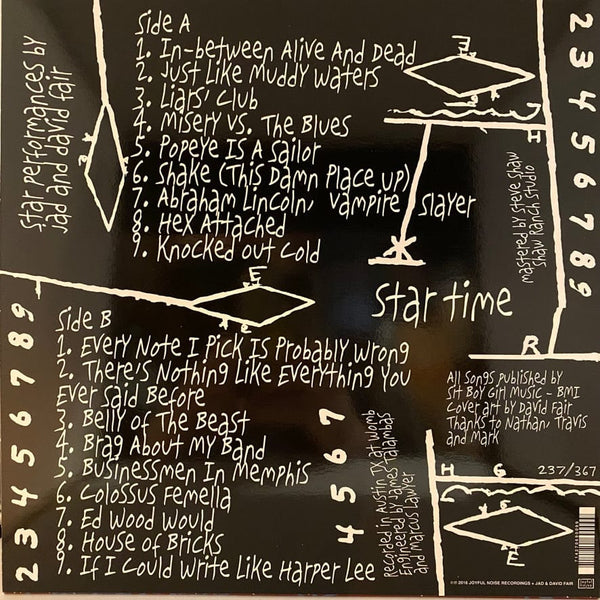 Side A
1. In-between Alive And Dead
2. Just Like Muddy Waters
3. Liars' Club
4. Misery vs. The Blues
5. Popeye Is A Sailor
6. Shake (This Damn Place Up)
7. Abraham Lincoln, Vampire Slayer
8. Hex Attached
9. Knocked out Cold
star performances by
jad and david fair
2 3 4 5 6 7 8 9
mastered by steve shaw
Shaw Ranch Studio
star time
Side B
1. Every Note I Pick Is Probably Wrong
2. There's Nothing Like Everything You
Ever Said Before
3. Belly of The Beast
4. Brag About My Band
5. Businessmen In Memphis
6. Colossus Femella
7. Ed Wood Would
8. House of Bricks
9. If I Could Write Like Harper Lee
2 3 4 5 6 7 8 9
4 5 6 7
Recorded in Austin TX at Womb
Engineered by James Talambas
and Marcus Lawyer
All Songs published by
Sit Boy Girl Music - BMI
Cover art by David Fair
Thanks to Nathan, Travis
and Mark
R
H G
237/367
E
℗© 2016 JOYFUL NOISE RECORDINGS + JAD & DAVID FAIR